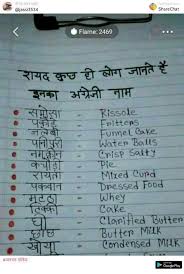 @jassi3514
ShareChat
Flame: 2469
शायद कुछ ही लोग जानते हैं
इनका अंग्रेजी नाम
समोसा - Rissole
पकोड़े - Fritters
जलेबी - Funnel Cake
पानी पूरी - Water Balls
नमकीन - Crisp Salty
कचौड़ी - Pie
रायता - Mixed Curd
पकवान - Dressed Food
मट्ठा - Whey
टिक्की - Cake
घी - Clarified Butter
छाछ - Butter Milk
खोया - Condensed Milk
Google Play